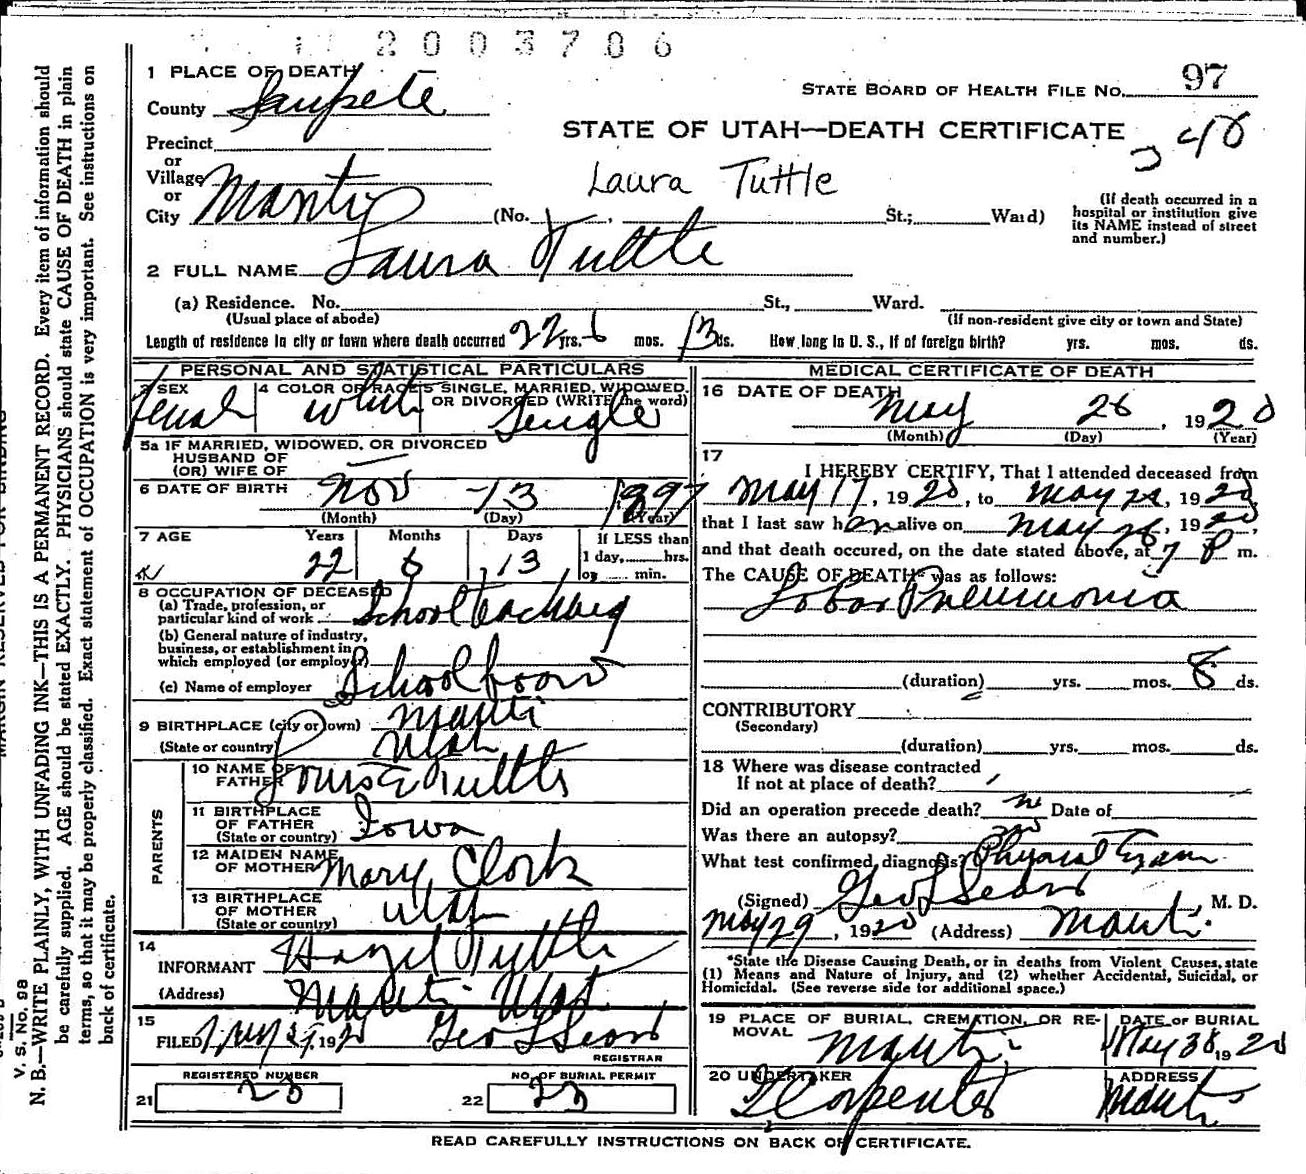 2003706
1 PLACE OF DEATH
County Sanpete
STATE BOARD OF HEALTH FILE No. 97
STATE OF UTAH—DEATH CERTIFICATE
48
Precinct
or
Village
or
City Manti (No. , St.; Ward)
Laura Tuttle
(If death occurred in a
hospital or institution give
its NAME instead of street
and number.)
2 FULL NAME Laura Tuttle
(a) Residence. No. St., Ward.
(Usual place of abode) (If non-resident give city or town and State)
Length of residence in city or town where death occurred 22 yrs. 6 mos. 13 ds. How long in U. S., if of foreign birth? yrs. mos. ds.
PERSONAL AND STATISTICAL PARTICULARS
3 SEX 4 COLOR OR RACE 5 SINGLE, MARRIED, WIDOWED,
OR DIVORCED (WRITE the word)
Female White Single
5a IF MARRIED, WIDOWED, OR DIVORCED
HUSBAND OF
(OR) WIFE OF
6 DATE OF BIRTH Nov 13 1897
(Month) (Day) (Year)
7 AGE Years Months Days If LESS than
1 day, hrs.
22 6 13 or min.
8 OCCUPATION OF DECEASED
(a) Trade, profession, or
particular kind of work School teaching
(b) General nature of industry,
business, or establishment in
which employed (or employer)
(c) Name of employer School board
9 BIRTHPLACE (city or town) Manti
(State or country) Utah
PARENTS
10 NAME OF
FATHER Louis E Tuttle
11 BIRTHPLACE
OF FATHER
(State or country) Iowa
12 MAIDEN NAME
OF MOTHER Mary Clark
13 BIRTHPLACE
OF MOTHER
(State or country) Utah
14
INFORMANT Hazel Tuttle
(Address) Manti Utah
15
FILED 1920 Geo L Sears
REGISTRAR
REGISTERED NUMBER NO. OF BURIAL PERMIT
21 23 22 23
MEDICAL CERTIFICATE OF DEATH
16 DATE OF DEATH
May 26, 1920
(Month) (Day) (Year)
17
I HEREBY CERTIFY, That I attended deceased from
May 17, 1920, to May 1920
that I last saw her alive on May 26, 1920,
and that death occured, on the date stated above, at 7 P m.
The CAUSE OF DEATH* was as follows:
Lobar Pneumonia
(duration) yrs. mos. 8 ds.
CONTRIBUTORY
(Secondary)
(duration) yrs. mos. ds.
18 Where was disease contracted
If not at place of death?
Did an operation precede death? no Date of
Was there an autopsy? no
What test confirmed diagnosis? Physical Exam
(Signed) Geo L Sears, M. D.
May 29, 1920 (Address) Manti
*State the Disease Causing Death, or in deaths from Violent Causes, state
(1) Means and Nature of Injury, and (2) whether Accidental, Suicidal, or
Homicidal. (See reverse side for additional space.)
19 PLACE OF BURIAL, CREMATION, OR RE-
MOVAL Manti
DATE OF BURIAL
May 1920
20 UNDERTAKER
Carpenter
ADDRESS
Manti
READ CAREFULLY INSTRUCTIONS ON BACK OF CERTIFICATE.
V. S. No. 98
N. B.—WRITE PLAINLY, WITH UNFADING INK—THIS IS A PERMANENT RECORD. Every item of information should
be carefully supplied. AGE should be stated EXACTLY. PHYSICIANS should state CAUSE OF DEATH in plain
terms, so that it may be properly classified. Exact statement of OCCUPATION is very important. See instructions on
back of certificate.